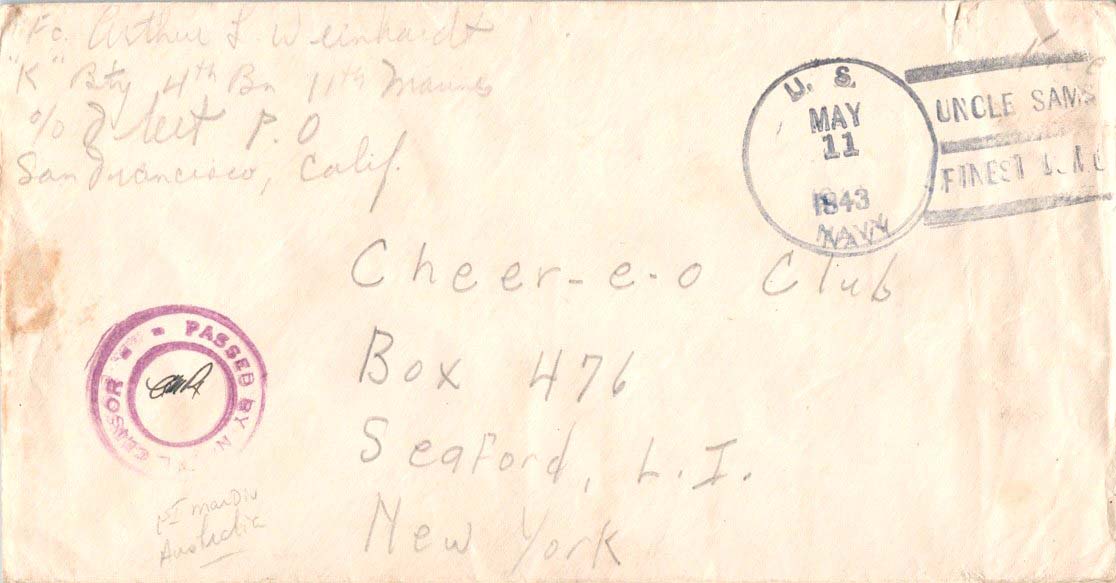 Pfc. Arthur L. Weinhardt
"K" Bty 4th Bn 11th Marines
c/o Fleet P.O
San Francisco, Calif.
U. S.
MAY
11
1943
NAVY
UNCLE SAMS
FINEST
Cheer-e-o Club
Box 476
Seaford, L.I.
New York
PASSED BY NAVAL CENSOR
1st MarDiv
Australia